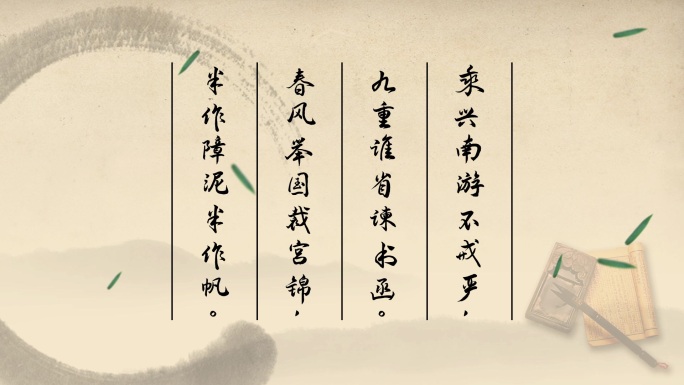 乘兴南游不戒严，
九重谁省谏书函。
春风举国裁宫锦，
半作障泥半作帆。